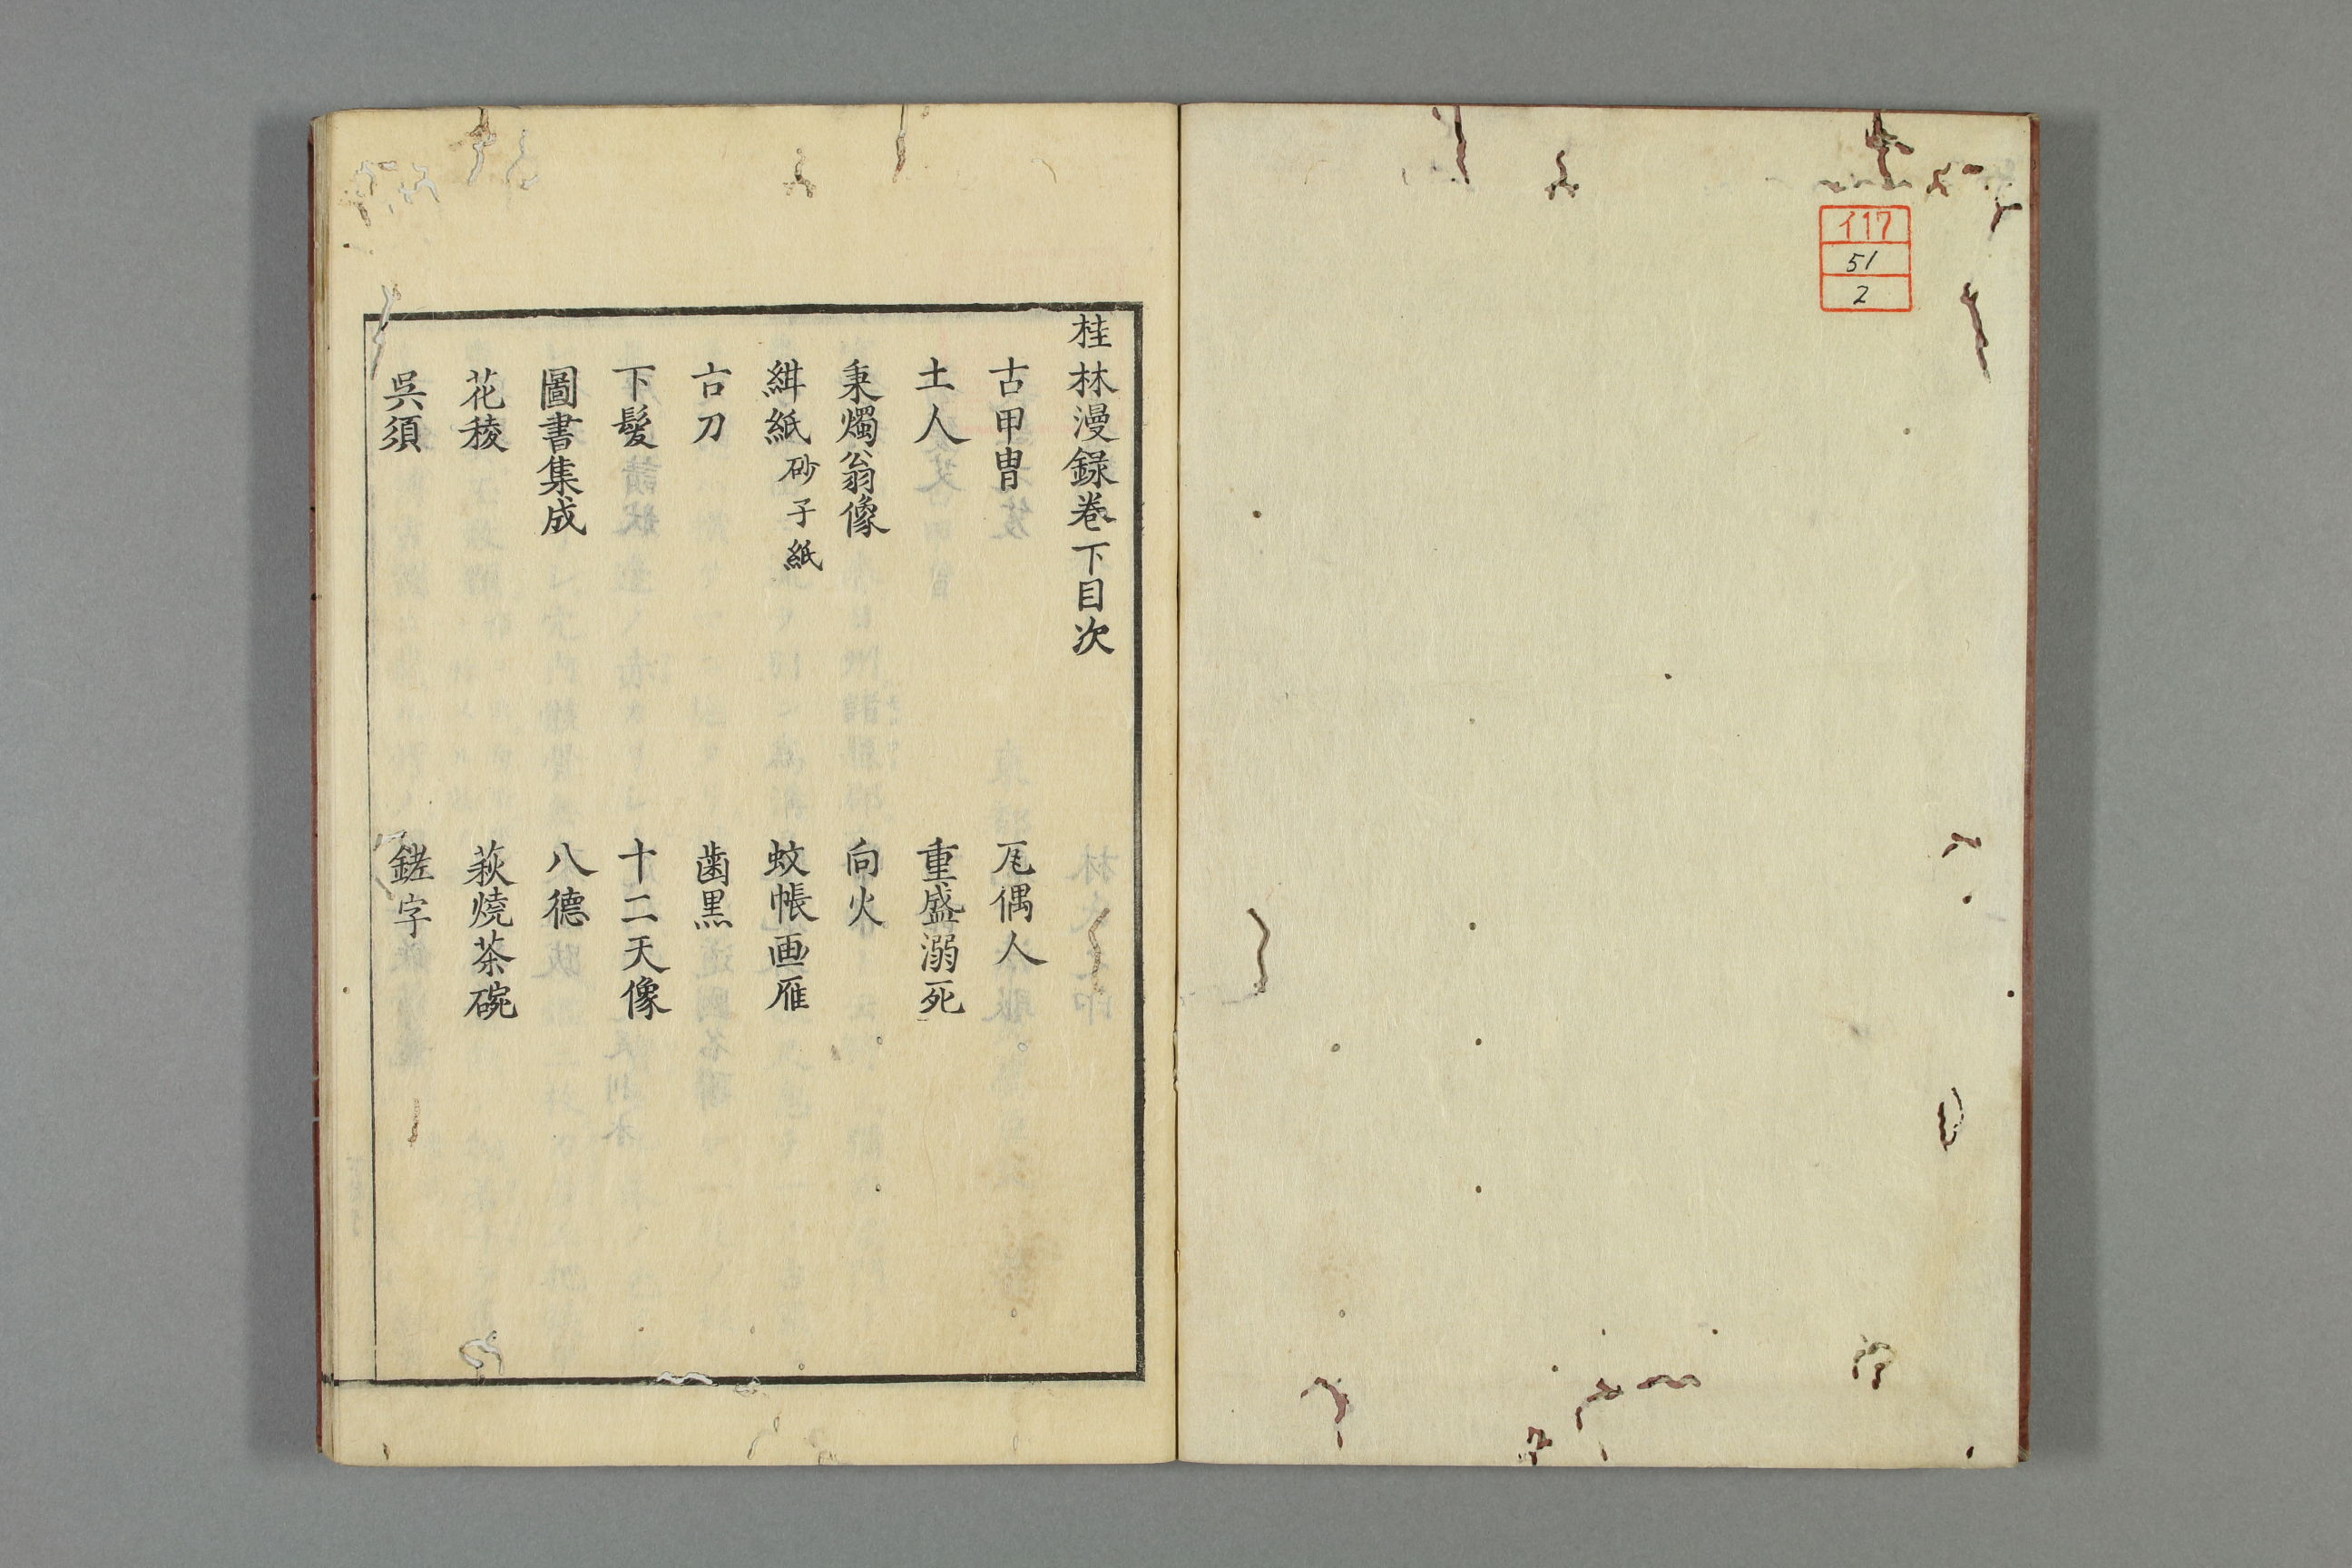 イ17
51
2
桂林漫録巻下目次
古甲冑
瓦偶人
土人
重盛溺死
秉燭翁像
向火
紺紙 砂子紙
蚊帳画雁
古刀
歯黒
下髪
十二天像
圖書集成
八德
花稜
萩焼茶碗
呉須
鎈字